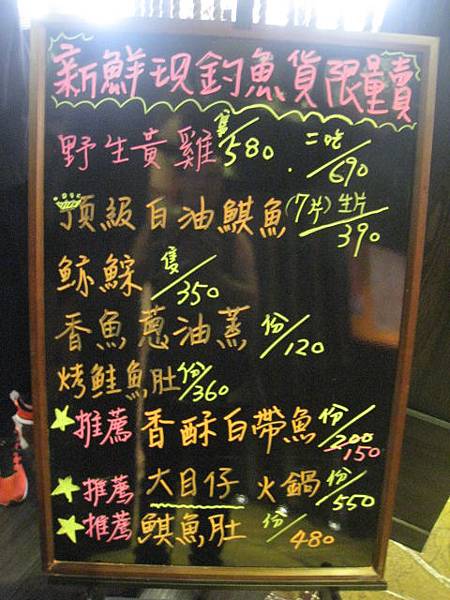 新鮮現釣魚貨限量賣
野生黃雞 隻/580. 二吃/690
頂級白油鯕魚(7片) 生片/390
鯨鯀 隻/350
香魚蔥油蒸 份/120
烤鮭魚肚 份/360
推薦 香酥白帶魚 份/200 150
推薦 大目仔 火鍋 份/550
推薦 鯕魚肚 份/480